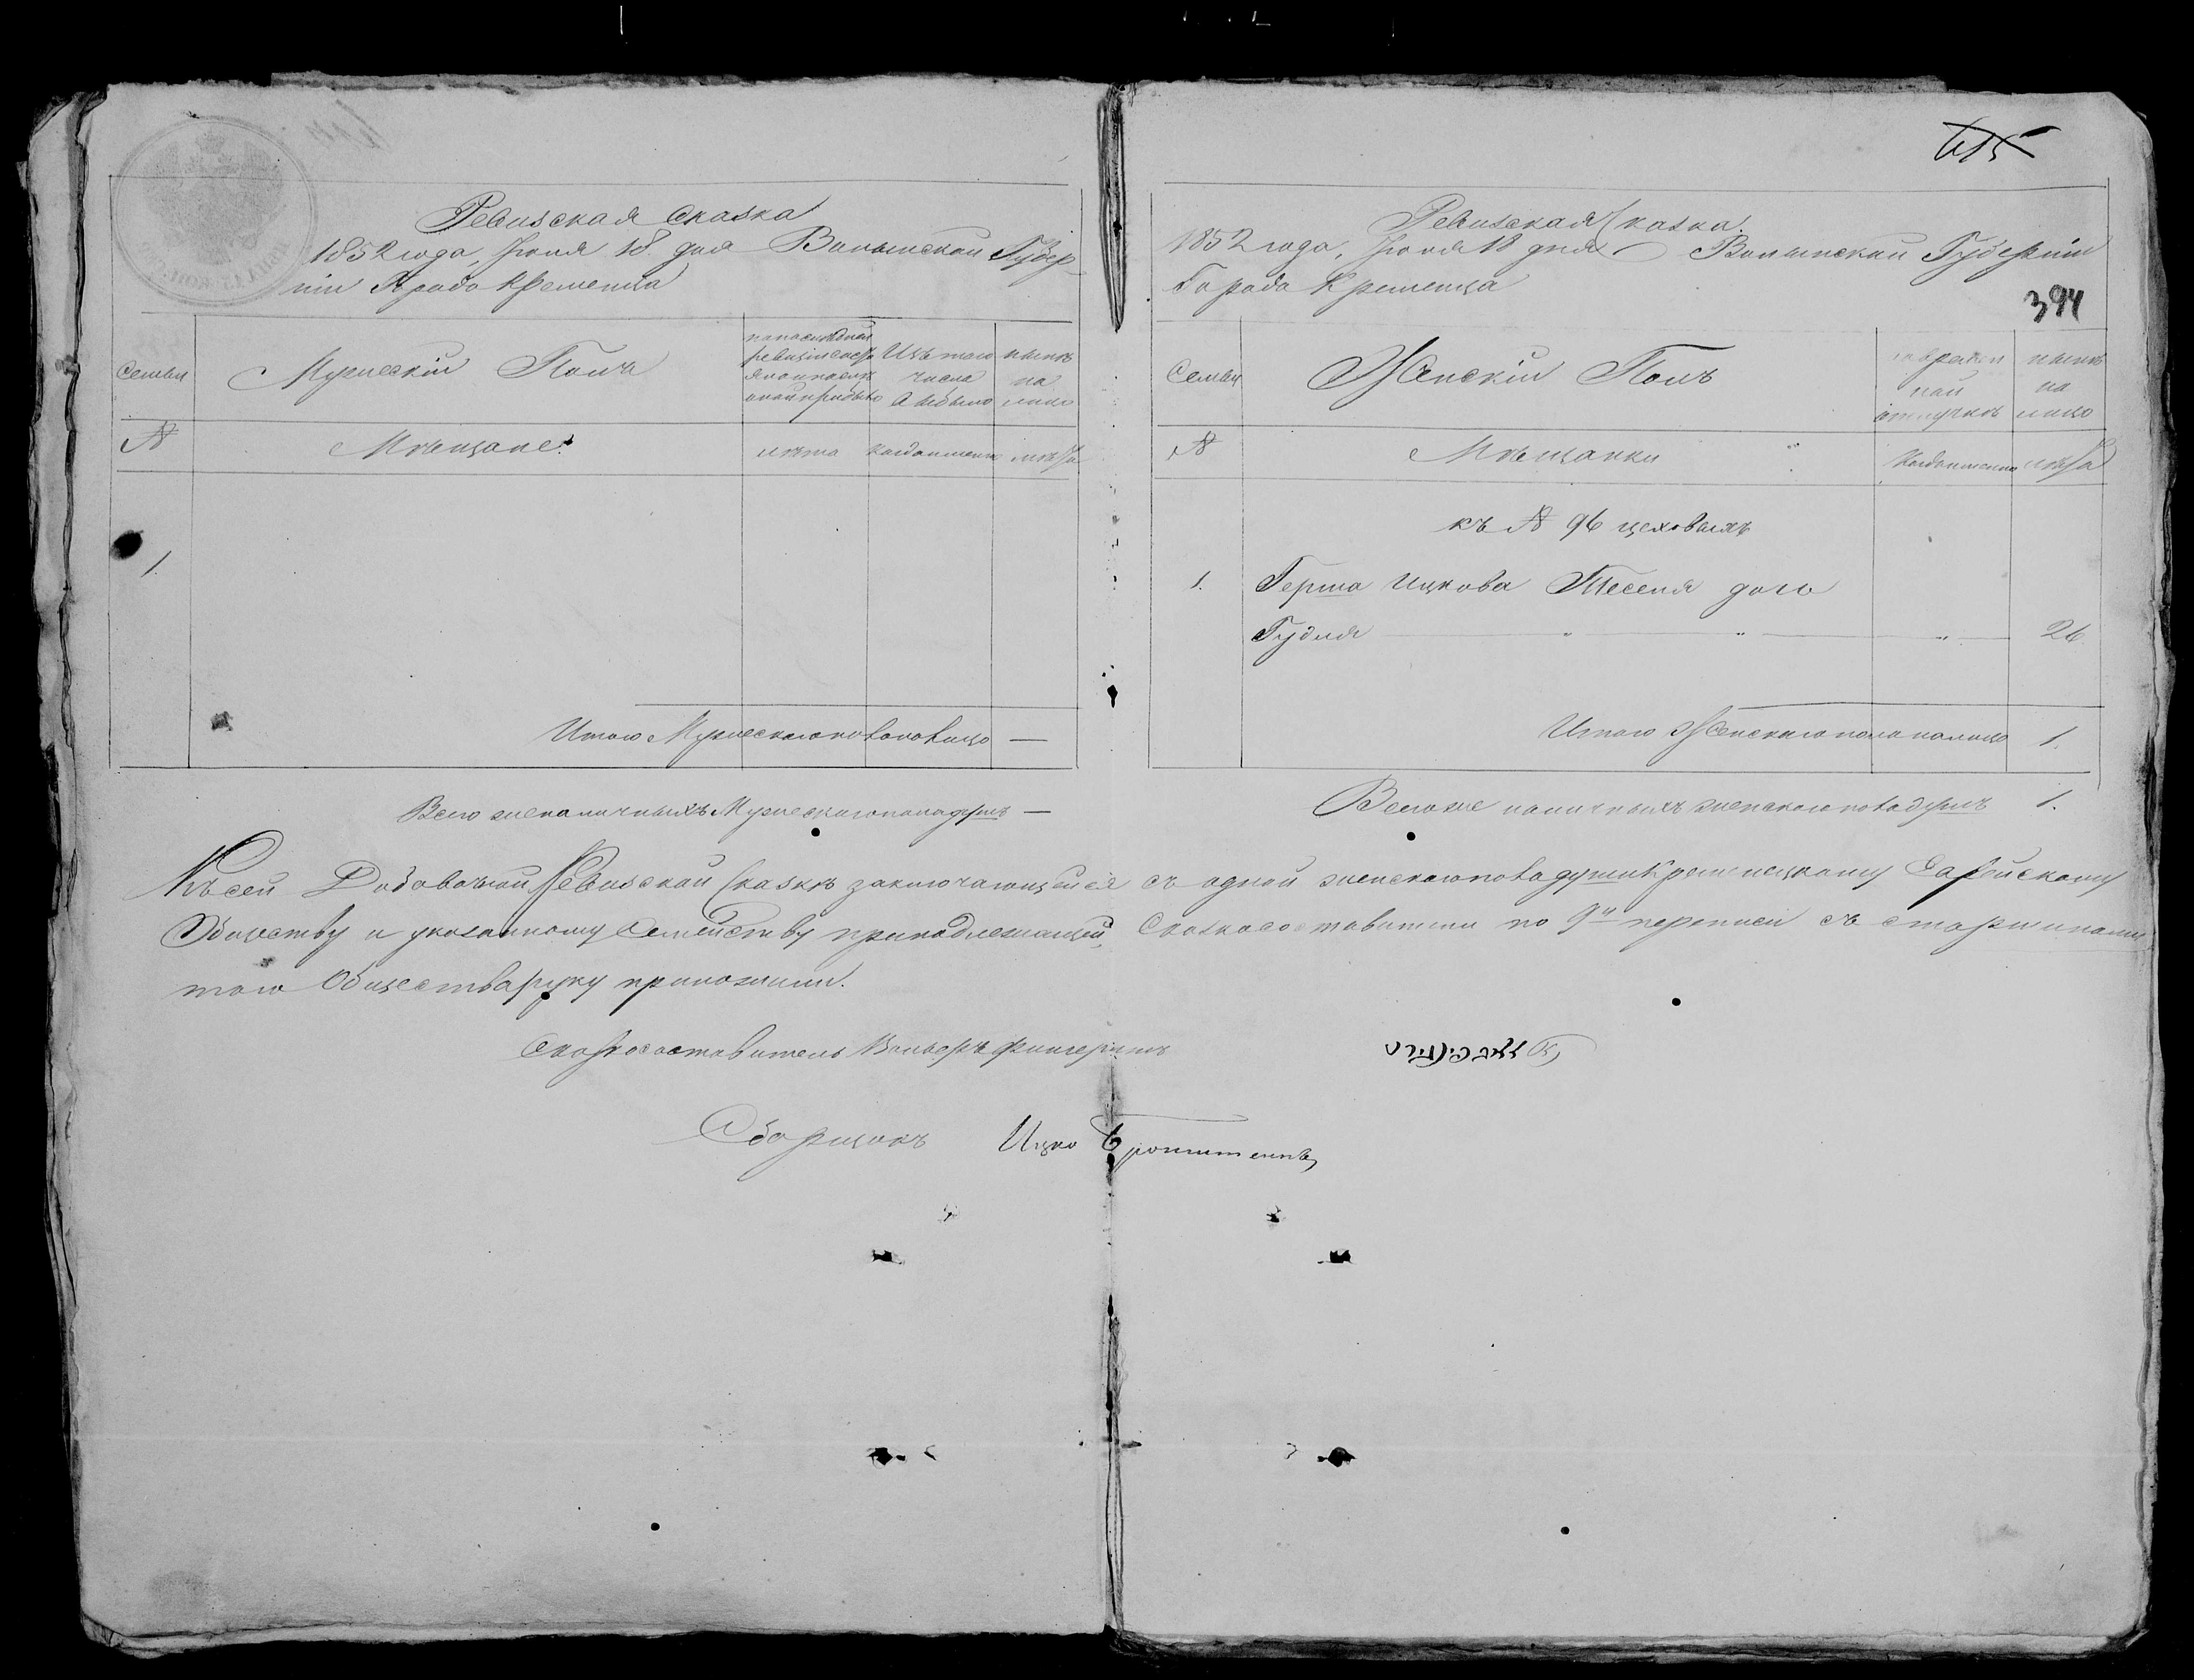 Ревизская Сказка
1852 года, Июня 18 дня Волынской Губер-
нiи Города Кременца
Семьи
Мужескiй Полъ
Изъ того числа выбыло
нынѣ на лицо
№
Мѣщане.
лѣта
Когда именно
лѣта
1
Итого Мужескаго пола на лицо —
Всего же наличныхъ Мужескаго пола душъ —
415
Ревизская Сказка.
1852 года, Июня 18 дня Волынской Губернiи
Города Кременца
394
Семьи
Женскiй Полъ
во временной отлучкѣ
нынѣ на лицо
№
Мѣщанки
Когда именно
лѣта
къ № 96 цеховыхъ
1. Герша Ицкова дочь
Гудля " " " 26
Итого Женскаго пола на лицо 1.
Всего же наличныхъ женскаго пола душъ 1.
Къ сей Добавочной Ревизской Сказкѣ заключающейся съ одной женскаго пола души Кременецкому Еврейскому
Обществу и указанному Семейству принадлежащей, Сказкосоставители по 9й переписи съ старшинами
того Общества руку приложили.
Сказкосоставитель
Сборщикъ Ицко